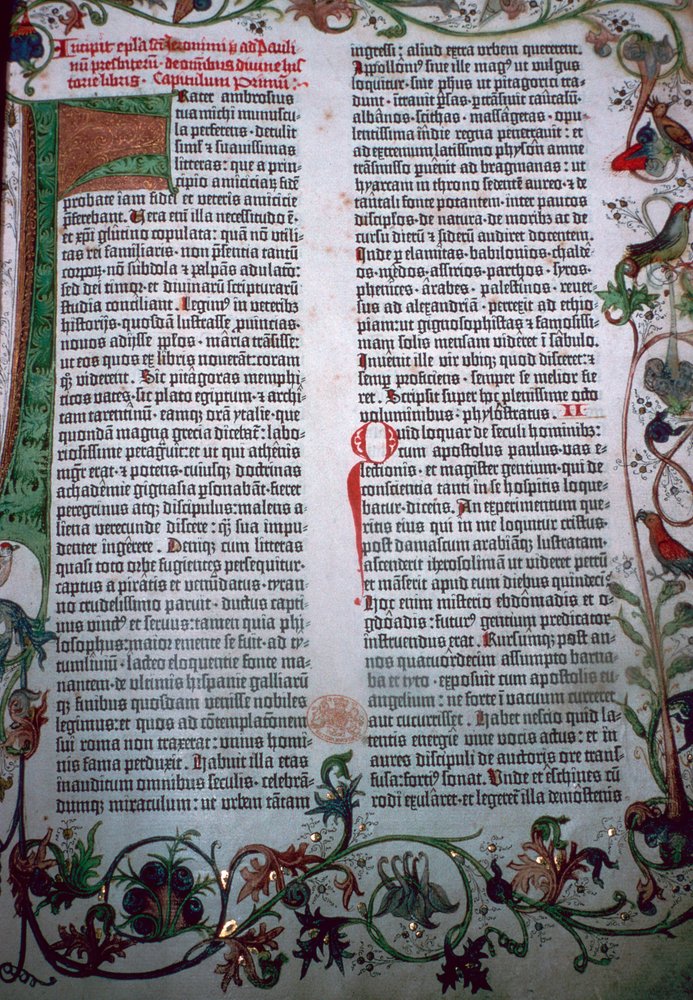 Incipit epl̃a sancti Jeronimi p̃ ad Pauli-
nũ presbiterũ: de om̃ibus divine his-
torie libris. Capitulum Primũ:
Frater ambrosius
tua michi munuscu-
la perferens· detulit
sim̃l et suavissimas
litteras: que a prin-
cipio amiciciaꝝ fidẽ
probate iam fidei et veteris amicicie
p̃ferebant. Vera eñ illa necessitudo ẽ·
et xp̃i glutino copulata: quã nõ utili-
tas rei familiaris· non p̃sentia tantũ
corpoꝝ· nõ subdola ⁊ palpãs adulac̃o:
sed dei timor· et divinaꝝ scripturarũ
studia conciliant. Legim⁹ in veterib⁹
historijs· quosdã lustrasse ꝓvincias·
novos adijsse pp̃los· maria trãsisse:
ut eos quos ex libris noverant: coram
qꝫ viderent. Sic pitagoras memphi-
ticos vates· sic plato egiptum· ⁊ archi-
tam tarentinũ· eamqꝫ orã ytalie· que
quondã magna grecia dicebat̃: labo-
riosissime peragravit: et ut qui athẽis
mgr̃ erat· ⁊ potens· cuiusqꝫ doctrinas
achademie gignasia p̃sonabãt· fieret
peregrinus atqꝫ discipulus: malens a-
liena verecunde discere: qꝫ sua impu-
denter ingerere. Deniqꝫ cum litteras
quasi toto orbe fugientes persequitur·
captus a piratis et venũdatus· tyran-
no crudelissimo paruit· ductus capti-
vus vinct⁹ et servus: tamen quia phi-
losophus: maior emente se fuit· ad ty-
tumlivium· lacteo eloquentie fonte ma-
nantem· de ultimis hispanie galliarũ-
qꝫ finibus quosdam venisse nobiles
legimus: et quos ad cõtemplac̃onem
sui roma non traxerat: unius homi-
nis fama perduxit. Habuit illa etas
inauditum omnibus seculis· celebrã-
dumqꝫ miraculum: ut urbem tãtam
ingressi: aliud extra urbem quererent.
Appolloni⁹ sive ille mag⁹ ut vulgus
loquitur· sive ph̃us ut pitagorici tra-
dunt· ĩtravit p̃sas· ꝑtrãsivit caucasũ·
albãnos· scithas· massagetas· opu-
lentissima indie regna penetravit: et
ad extremum latissimo physon amne
trãsmisso ꝑuẽit ad bragmanas: ut
hyarcam in throno sedentẽ aureo· ⁊ de
tantali fonte potantem· inter paucos
discip̃los· de natura· de morib⁹ ac de
cursu dierũ ⁊ siderũ audiret docentem.
Inde p̃ elamitas· babilonios· chalde-
os· medos· assirios· parthos· syros·
phenices· arabes· palestinos· rever-
sus ad alexandriã· perrexit ad ethio-
piam: ut gignosophistas ⁊ famosissi-
mam solis mensam videret ĩ sabulo.
Invẽit ille vir ubiqꝫ quod disceret: ⁊
semp̃ proficiens· semper se melior fie-
ret. Scripsit super h̃ plenissime octo
voluminibus· phylostratus. II
Quid loquar de seculi hominib⁹:
cum apostolus paulus· vas e-
lectionis· et magister gentium· qui de
conscientia tanti in se hospitis loque-
batur· dicens. An experimentum que-
ritis eius qui in me loquitur cristus·
post damascum arabiãqꝫ lustratam·
ascenderit iherosolimã ut videret petrũ
et mãserit apud eum diebus quindeci̅:
Hoc enim misterio ebdõmadis et o-
gdõadis: futur⁹ gentium predicator
instruendus erat. Rursũmqꝫ post an-
nos quatuórdecim assumpto barna-
ba et tyto· exposuit cum apostolis eu-
angelium: ne forte ĩ vacuum curreret
aut cucurrisset. Habet nescio quid la-
tentis energie vive vocis actus: et in
aures discipuli de auctoris ore trans-
fusa: forti⁹ sonat. Unde et eschines cũ
rodi exularet· et legeret̃ illa demosthenis